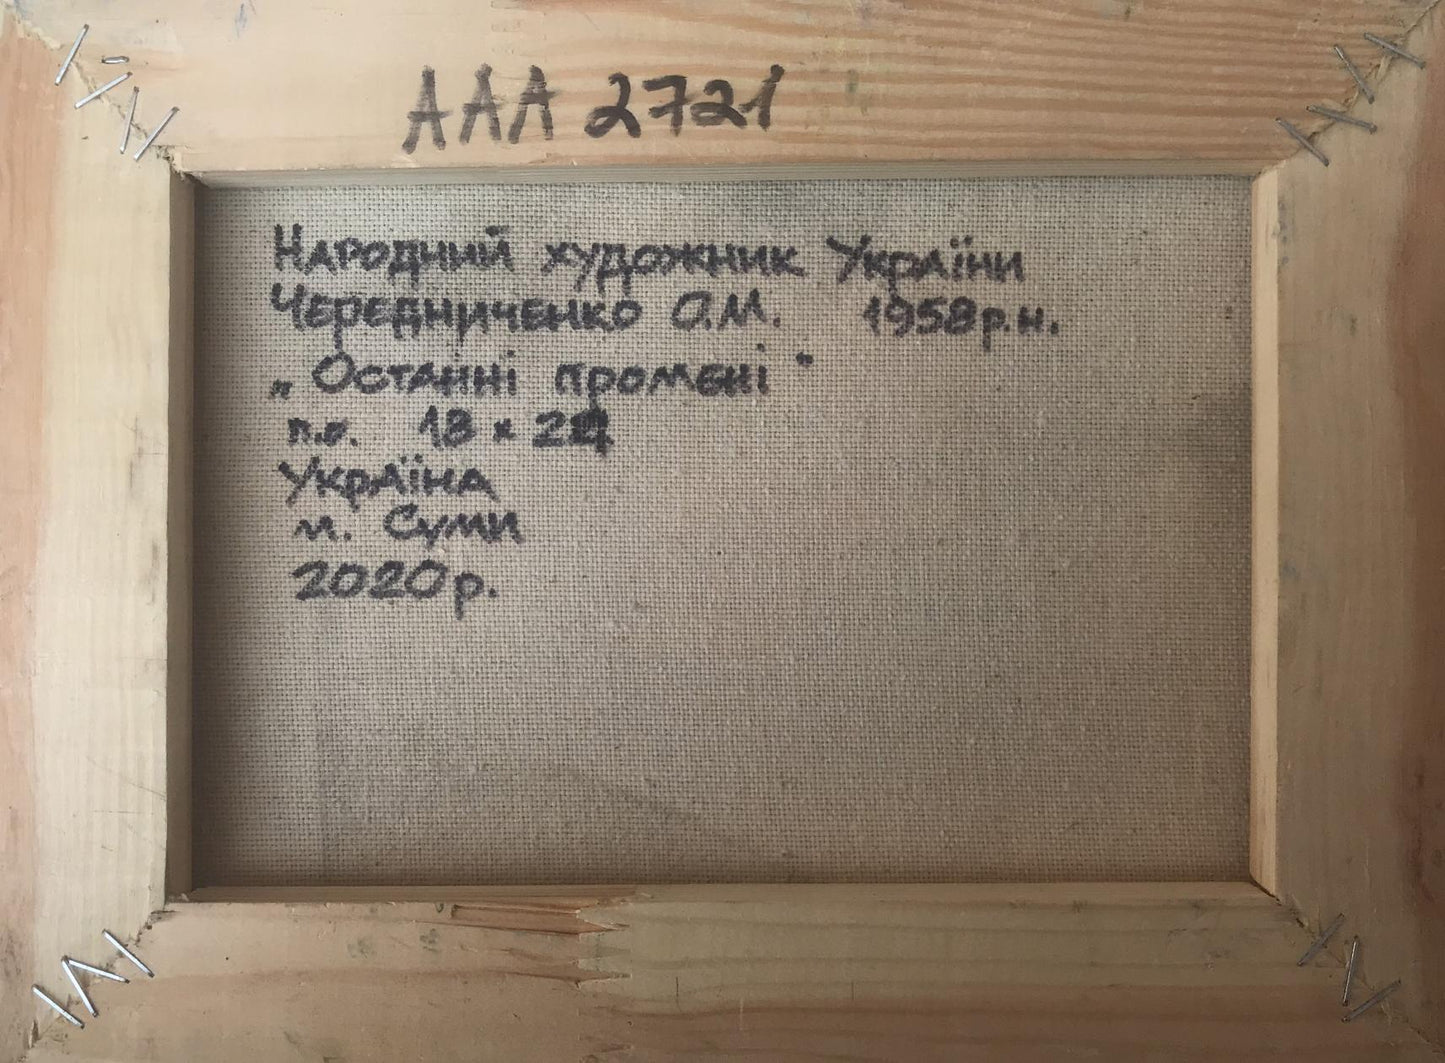 ААА 2721
Народний художник України
Чередниченко О.М. 1958р.н.
„Останні промені"
п.о. 18 х
Україна
м. Суми
2020р.